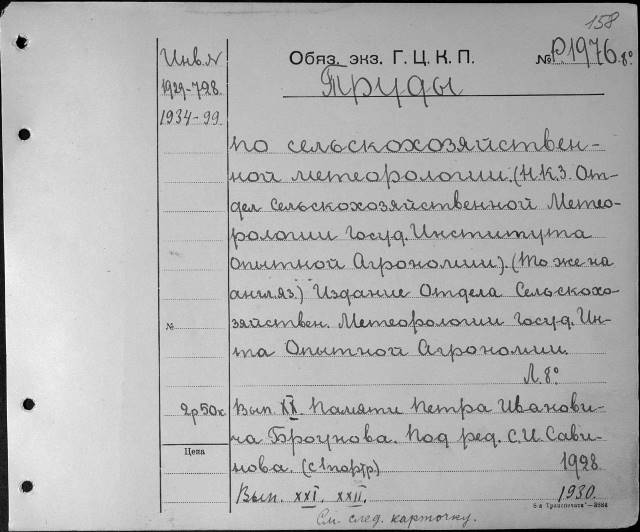 158
Инв. №
1929-728.
1934-99.
Обяз. экз. Г. Ц. К. П. № Р.1976.8º
Труды
по сельскохозяйствен-
ной метеорологии. (Н.К.З. От-
дел Сельскохозяйственной Метео-
рологии Госуд. Института
Опытной Агрономии). (То же на
англ.яз.) Издание Отдела Сельскохо-
№ зяйствен. Метеорологии Госуд. Ин-
та Опытной Агрономии.
Л. 8º
2р50к. Вып. XX. Памяти Петра Иванови-
ча Броунова. Под ред. С.И. Сави-
Цена
нова. (с 1 портр) 1928
Вып. XXI. XXII. 1930.
См. след. карточку.